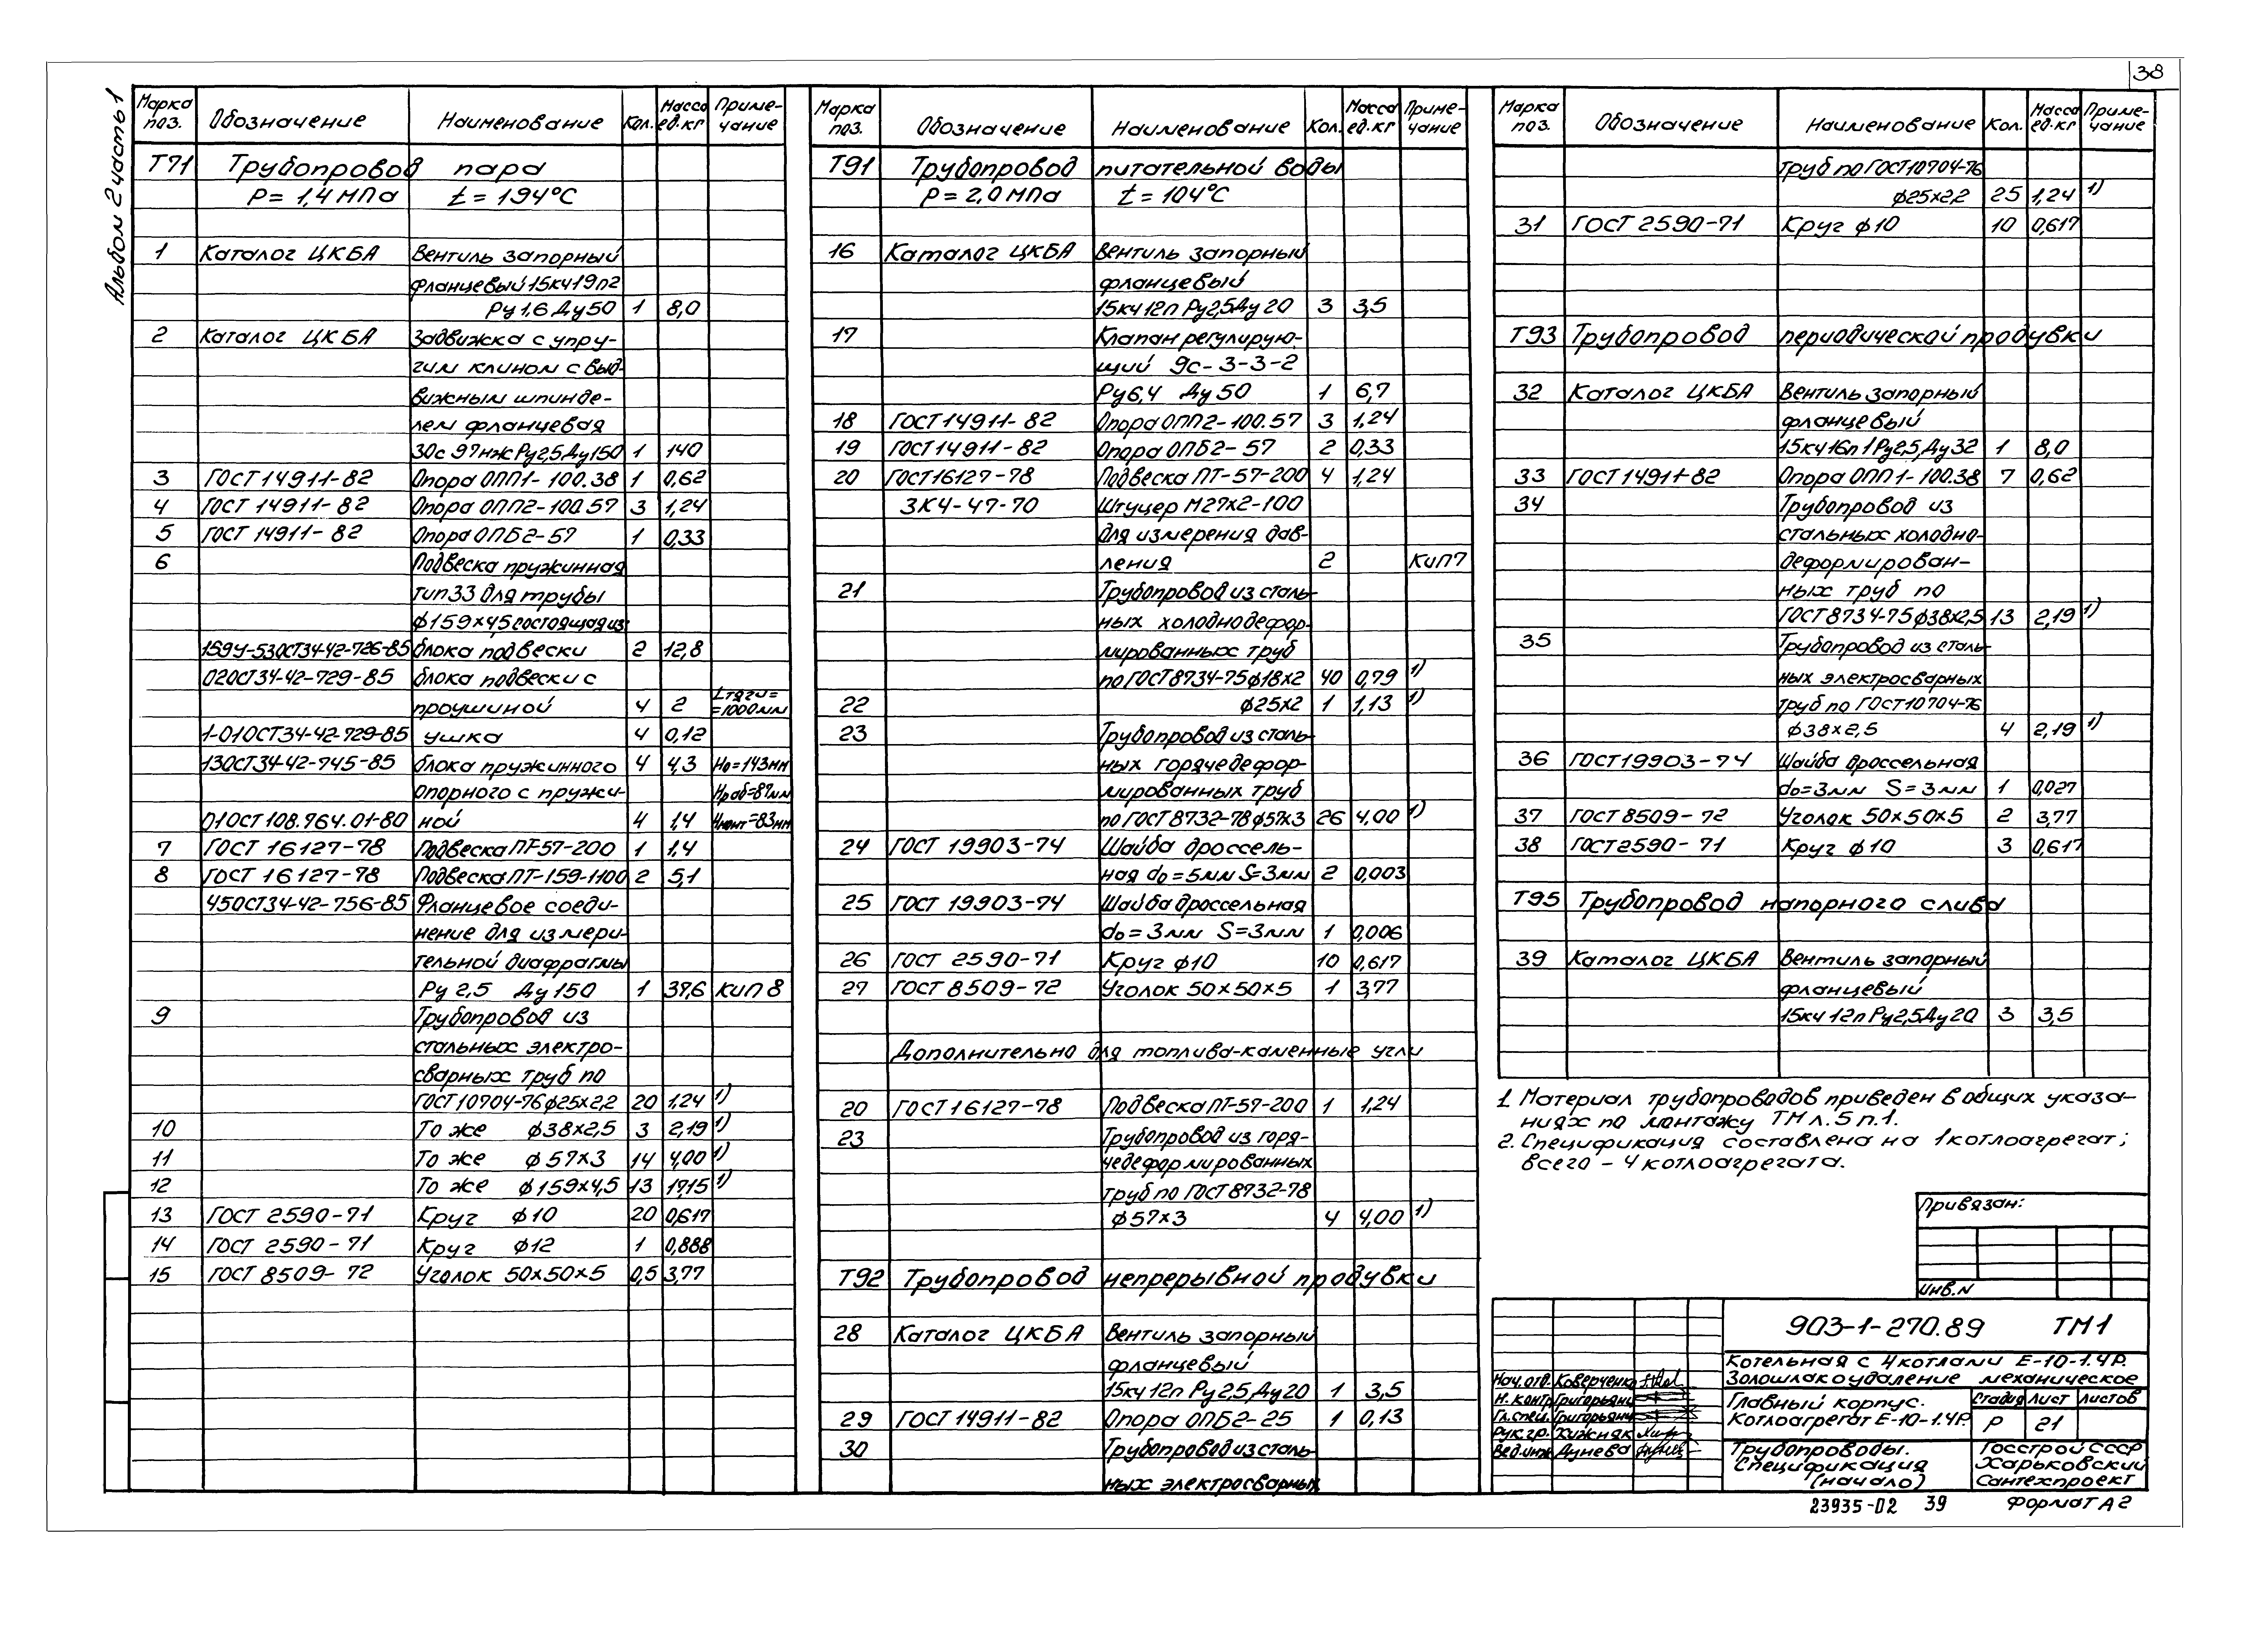 38
Альбом 2 часть 1
Марка поз. Обозначение Наименование Кол. Масса ед.кг Приме-чание
Т71 Трубопровод пара
P = 1,4 МПа t = 194°C
1 Каталог ЦКБА Вентиль запорный
фланцевый 15кч19п2
Ру1,6 Ду50 1 8,0
2 Каталог ЦКБА Задвижка с упру-
гим клином с выд-
вижным шпинде-
лем фланцевая
30с97нж Ру2,5 Ду150 1 140
3 ГОСТ 14911-82 Опора ОПП1-100.38 1 0,62
4 ГОСТ 14911-82 Опора ОПП2-100.57 3 1,24
5 ГОСТ 14911-82 Опора ОПБ2-57 1 0,33
6 Подвеска пружинная
тип 33 для трубы
ф159×4,5 состоящая из:
159Ч-53ОСТ34-42-726-85 блока подвески 2 12,8
02ОСТ34-42-729-85 блока подвески с
проушиной 4 2 Lтяги= =1000мм
1-01ОСТ34-42-729-85 ушка 4 0,12
13ОСТ34-42-745-85 блока пружинного 4 4,3 Н0=143мм
опорного с пружи- Нраб=87мм
01ОСТ108.764.01-80 ной 4 1,4 Нмонт=83мм
7 ГОСТ 16127-78 Подвеска ПГ-57-200 1 1,4
8 ГОСТ 16127-78 Подвеска ПГ-159-1100 2 5,1
45ОСТ34-42-756-85 Фланцевое соеди-
нение для измери-
тельной диафрагмы
Ру 2,5 Ду 150 1 37,6 КИП 8
9 Трубопровод из
стальных электро-
сварных труб по
ГОСТ 10704-76 ф25×2,2 20 1,24 1)
10 То же ф38×2,5 3 2,19 1)
11 То же ф57×3 14 4,00 1)
12 То же ф159×4,5 13 17,15 1)
13 ГОСТ 2590-71 Круг ф10 20 0,617
14 ГОСТ 2590-71 Круг ф12 1 0,888
15 ГОСТ 8509-72 Уголок 50×50×5 0,5 3,77
Марка поз. Обозначение Наименование Кол. Масса ед.кг Приме-чание
Т91 Трубопровод питательной воды
P = 2,0 МПа t = 104°C
16 Каталог ЦКБА Вентиль запорный
фланцевый
15кч12п Ру2,5 Ду 20 3 3,5
17 Клапан регулирую-
щий 9с-3-3-2
Ру6,4 Ду 50 1 6,7
18 ГОСТ 14911-82 Опора ОПП2-100.57 3 1,24
19 ГОСТ 14911-82 Опора ОПБ2-57 2 0,33
20 ГОСТ 16127-78 Подвеска ПГ-57-200 4 1,24
ЗК4-47-70 Штуцер М27×2-100
для измерения дав-
ления 2 КИП7
21 Трубопровод из сталь-
ных холоднодефор-
мированных труб
по ГОСТ 8734-75 ф18×2 40 0,79 1)
22 ф25×2 1 1,13 1)
23 Трубопровод из сталь-
ных горячедефор-
мированных труб
по ГОСТ 8732-78 ф57×3 26 4,00 1)
24 ГОСТ 19903-74 Шайба дроссель-
ная d0=5мм S=3мм 2 0,003
25 ГОСТ 19903-74 Шайба дроссельная
d0=3мм S=3мм 1 0,006
26 ГОСТ 2590-71 Круг ф10 10 0,617
27 ГОСТ 8509-72 Уголок 50×50×5 1 3,77
Дополнительно для топлива-каменные угли
20 ГОСТ 16127-78 Подвеска ПГ-57-200 1 1,24
23 Трубопровод из горя-
чедеформированных
труб по ГОСТ 8732-78
ф57×3 4 4,00 1)
Т92 Трубопровод непрерывной продувки
28 Каталог ЦКБА Вентиль запорный
фланцевый
15кч12п Ру2,5 Ду20 1 3,5
29 ГОСТ 14911-82 Опора ОПБ2-25 1 0,13
30 Трубопровод из сталь-
ных электросварных
Марка поз. Обозначение Наименование Кол. Масса ед.кг Приме-чание
труб по ГОСТ 10704-76
ф25×2,2 25 1,24 1)
31 ГОСТ 2590-71 Круг ф10 10 0,617
Т93 Трубопровод периодической продувки
32 Каталог ЦКБА Вентиль запорный
фланцевый
15кч16п1 Ру2,5, Ду32 1 8,0
33 ГОСТ 14911-82 Опора ОПП1-100.38 7 0,62
34 Трубопровод из
стальных холодно-
деформирован-
ных труб по
ГОСТ 8734-75 ф38×2,5 13 2,19 1)
35 Трубопровод из сталь-
ных электросварных
труб по ГОСТ 10704-76
ф38×2,5 4 2,19 1)
36 ГОСТ 19903-74 Шайба дроссельная
d0=3мм S=3мм 1 0,027
37 ГОСТ 8509-72 Уголок 50×50×5 2 3,77
38 ГОСТ 2590-71 Круг ф10 3 0,617
Т95 Трубопровод напорного слива
39 Каталог ЦКБА Вентиль запорный
фланцевый
15кч12п Ру2,5 Ду20 3 3,5
1 Материал трубопроводов приведен в общих указа-
ниях по монтажу ТМ л.5 п.1.
2. Спецификация составлена на 1 котлоагрегат;
всего – 4 котлоагрегата.
Привязан:
Инв.N
903-1-270.89 ТМ1
Котельная с 4 котлами Е-10-1.4Р.
Золошлакоудаление механическое
Нач.отд. Коверченко
Н.контр Григорьянц
Гл.спец. Григорьянц
Рук.гр. Хижняк
Вед.инж Дунева
Главный корпус.
Котлоагрегат Е-10-1.4Р.
Стадия Лист Листов
Р 21
Трубопроводы.
Спецификация
(начало)
Госстрой СССР
Харьковский
Сантехпроект
23935-02 39 Формат А2